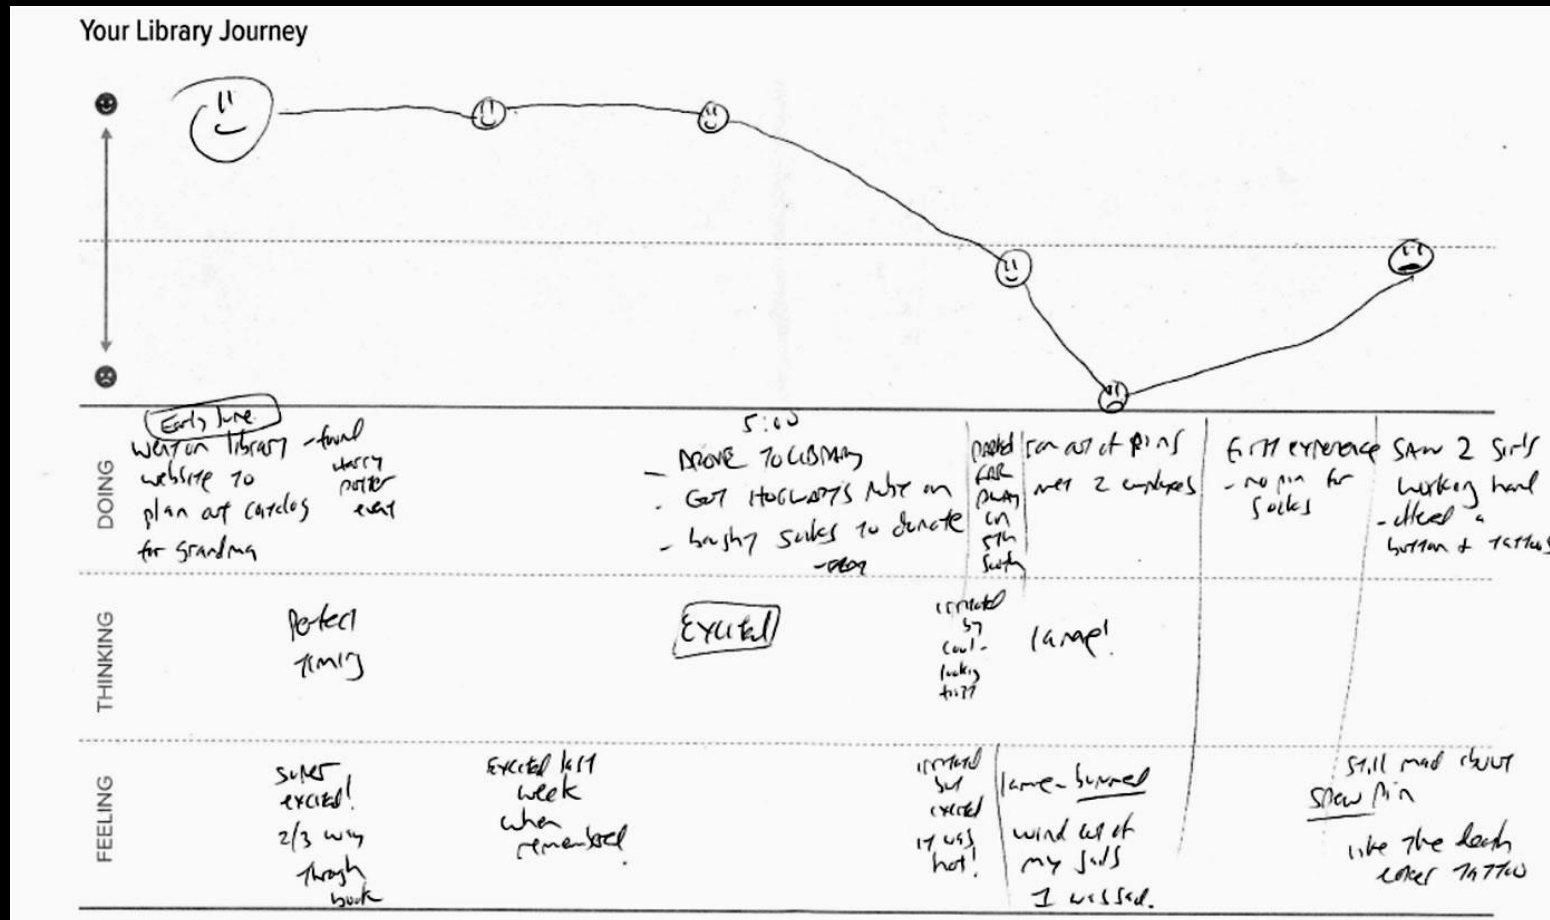 Your Library Journey
DOING
Early June
went on library - found
website to Harry
plan out catalog Potter
for grandma event
5:00
- DROVE TO LIBRARY
- GOT HOGWARTS robe on
- bought socks to donate
parked
CAR
away
on
5th
South
ran out of pins
met 2 employees
first experience
- no pin for
socks
SAW 2 girls
working hard
- offered a
button + TATTOOS
THINKING
Perfect
timing
EXCITED
irritated
by
cool-
looking
lame!
FEELING
super
excited!
2/3 way
through
book
Excited last
week
when
remembered
irritated
but
excited
it was
hot!
lame - bummed
wind out of
my sails
I was sad.
still mad about
SPEW pin
like the death
eater TATTOO